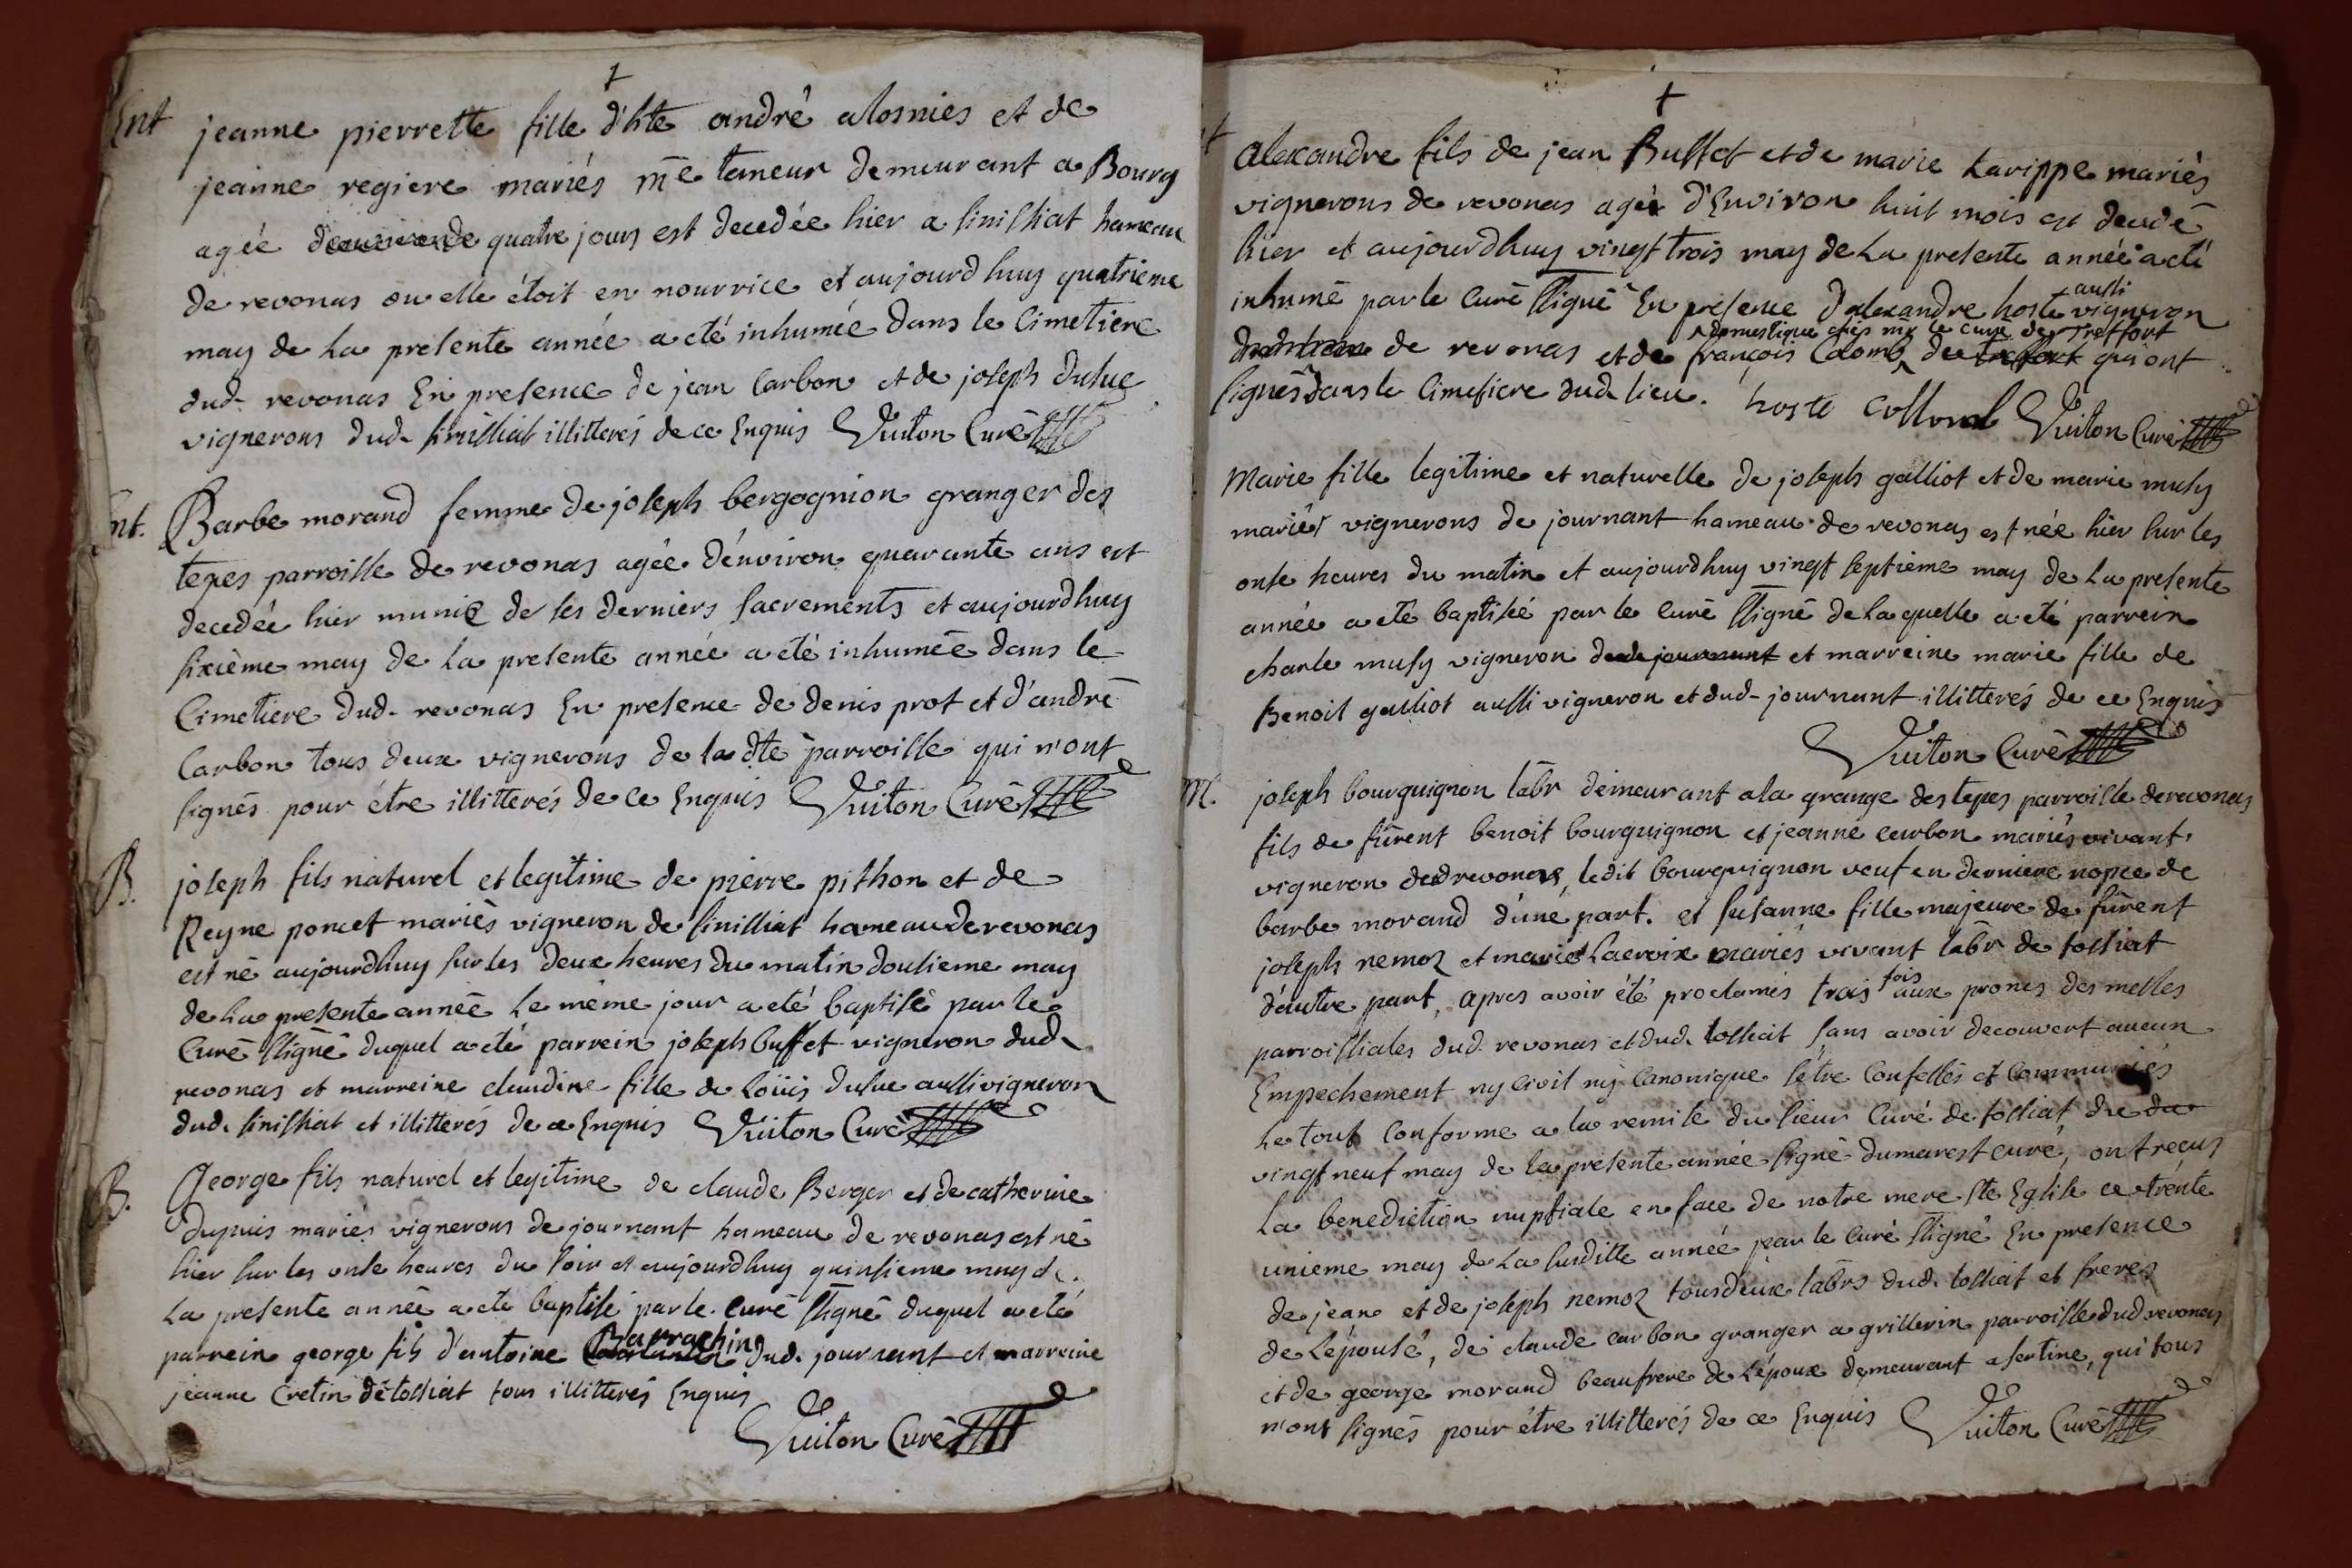 +
Ent jeanne pierrette fille d'hte andré alosnies et de
jeanne regiere mariés me taneur demeurant a Bourg
agée de quatre jours est decedée hier a sinissiat hameau
de revonas ou elle étoit en nourrice et aujourdhuy quatrieme
may de la presente année a eté inhumée dans le Cimetiere
dud. revonas En presence de jean Carbon et de joseph dusuc
vignerons dud. sinissiat illitterés de ce Enquis Vuiton Curé
Ent. Barbe morand femme de joseph bergognion granger des
tepes parroisse de revonas agée d'énviron quarante ans est
decedée hier munie de ses derniers sacrements et aujourdhuy
sixième may de la presente année a eté inhumée dans le
Cimetiere dud. revonas En presence de denis prot et d'andré
Carbon tous deux vignerons de la dte parroisse qui n'ont
signés pour étre illitterés de ce Enquis Vuiton Curé
B. joseph fils naturel et legitime de pierre pithon et de
Reyne poncet mariés vigneron de sinissiat hameau de revonas
est né aujourdhuy sur les deux heures du matin dousieme may
de la presente année le même jour a eté baptisé par le
Curé ssigné duquel a eté parrein joseph buffet vigneron dud.
revonas et marreine claudine fille de Loüis dusuc aussi vigneron
dud. sinissiat et illitterés de ce Enquis Vuiton Curé
B. George fils naturel et legitime de claude Berger et de catherine
dupuis mariés vignerons de journant hameau de revonas est né
hier sur les onse heures du soir et aujourdhuy quinsieme may de
la presente année a eté baptisé par le curé ssigné duquel a eté
parrein george fils d'antoine Barrachin dud. journant et marreine
jeanne Cretin de tossiat tous illitterés Enquis
Vuiton Curé
+
alexandre fils de jean Buffet et de marie Larippe mariés
vignerons de revonas agé d'Environ huit mois est decedé
hier et aujourdhuy vingt trois may de la presente année a eté
inhumé par le Curé ssigné En presence d'alexandre hoste aussi vigneron
de revonas et de françois Colomb domestique chés mr le curé de Treffort qui ont
signés dans le Cimetiere dud. lieu. hoste Collomb Vuiton Curé
Marie fille legitime et naturelle de joseph galliot et de marie musy
mariés vignerons de journant hameau de revonas est née hier sur les
onse heures du matin et aujourdhuy vingt septieme may de la presente
année a eté baptisée par le Curé ssigné de laquelle a eté parrein
charle musy vigneron dud. journant et marreine marie fille de
Benoit galliot aussi vigneron et dud. journant illitterés de ce Enquis
Vuiton Curé
M. joseph bourguignon labr demeurant a la grange des tepes parroisse de revonas
fils de fûrent benoit bourguignon et jeanne carbon mariés vivant
vigneron dud revonas, ledit bourguignon veuf en derniere nopce de
barbe morand d'uné part. et susanne fille majeure de fûrent
joseph nemoz et marie Lacroix mariés vivant labr de tossiat
d'autre part, apres avoir été proclamés trois fois aux prones des messes
parroissiales dud. revonas et dud. tossiat sans avoir decouvert aucun
Empechement ny Civil ny Canonique s'étre Confessés et Communiés
Le tout Conforme a la remise du sieur Curé de tossiat du du
vingt neuf may de la presente année signé dumarest curé, ont reçus
La benediction nuptiale en face de notre mere ste Eglise ce trénte
unieme may de la susditte année par le Curé ssigné En presence
de jean et de joseph nemoz tous deux labrs dud. tossiat et freres
de Lépouse, de claude carbon granger a grillerin parroisse dud revonas
et de george morand beaufrere de Lépoux demeurant a sertine, qui tous
n'ont signés pour étre illitterés de ce Enquis Vuiton Curé